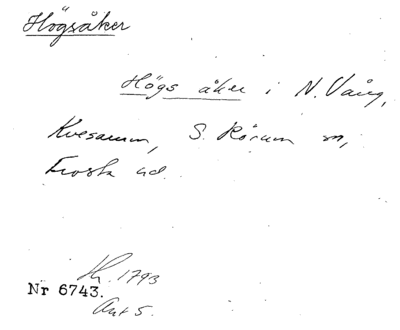 Högsåker
Högs åker i N. Vång,
Kvesarum, S. Rörum sn,
Frosta hd.
1793
Nr 6743.
Art 5.